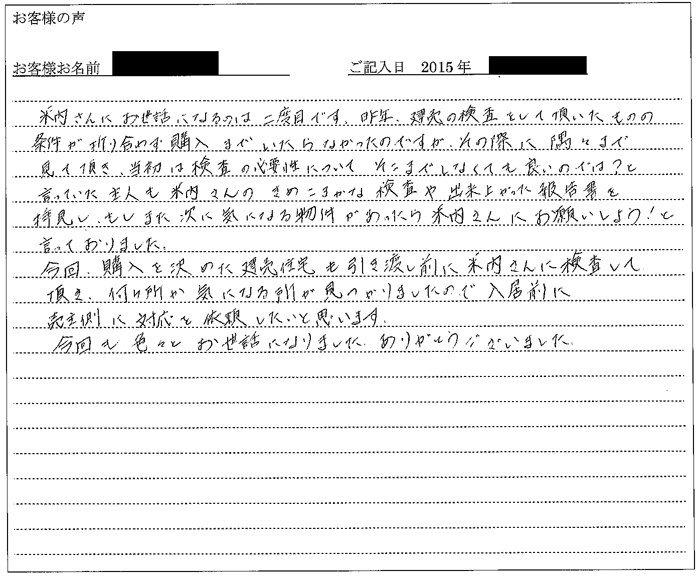 お客様の声
お客様お名前
ご記入日 2015年
米内さんにお世話になるのは二度目です。昨年、建売の検査をして頂いたものの
条件が折り合わず購入までいたらなかったのですが、その際に隅々まで
見て頂き、当初は検査の必要性についてそこまでしなくても良いのでは?と
言っていた主人も米内さんのきめこまかな検査や出来上がった報告書を
拝見し、もしまた次に気になる物件があったら米内さんにお願いしよう!と
言っておりました。
今回、購入を決めた建売住宅も引き渡し前に米内さんに検査して
頂き、何ヶ所か気になる所が見つかりましたので入居前に
売主側に対応を依頼したいと思います。
今回も色々とお世話になりました。ありがとうございました。